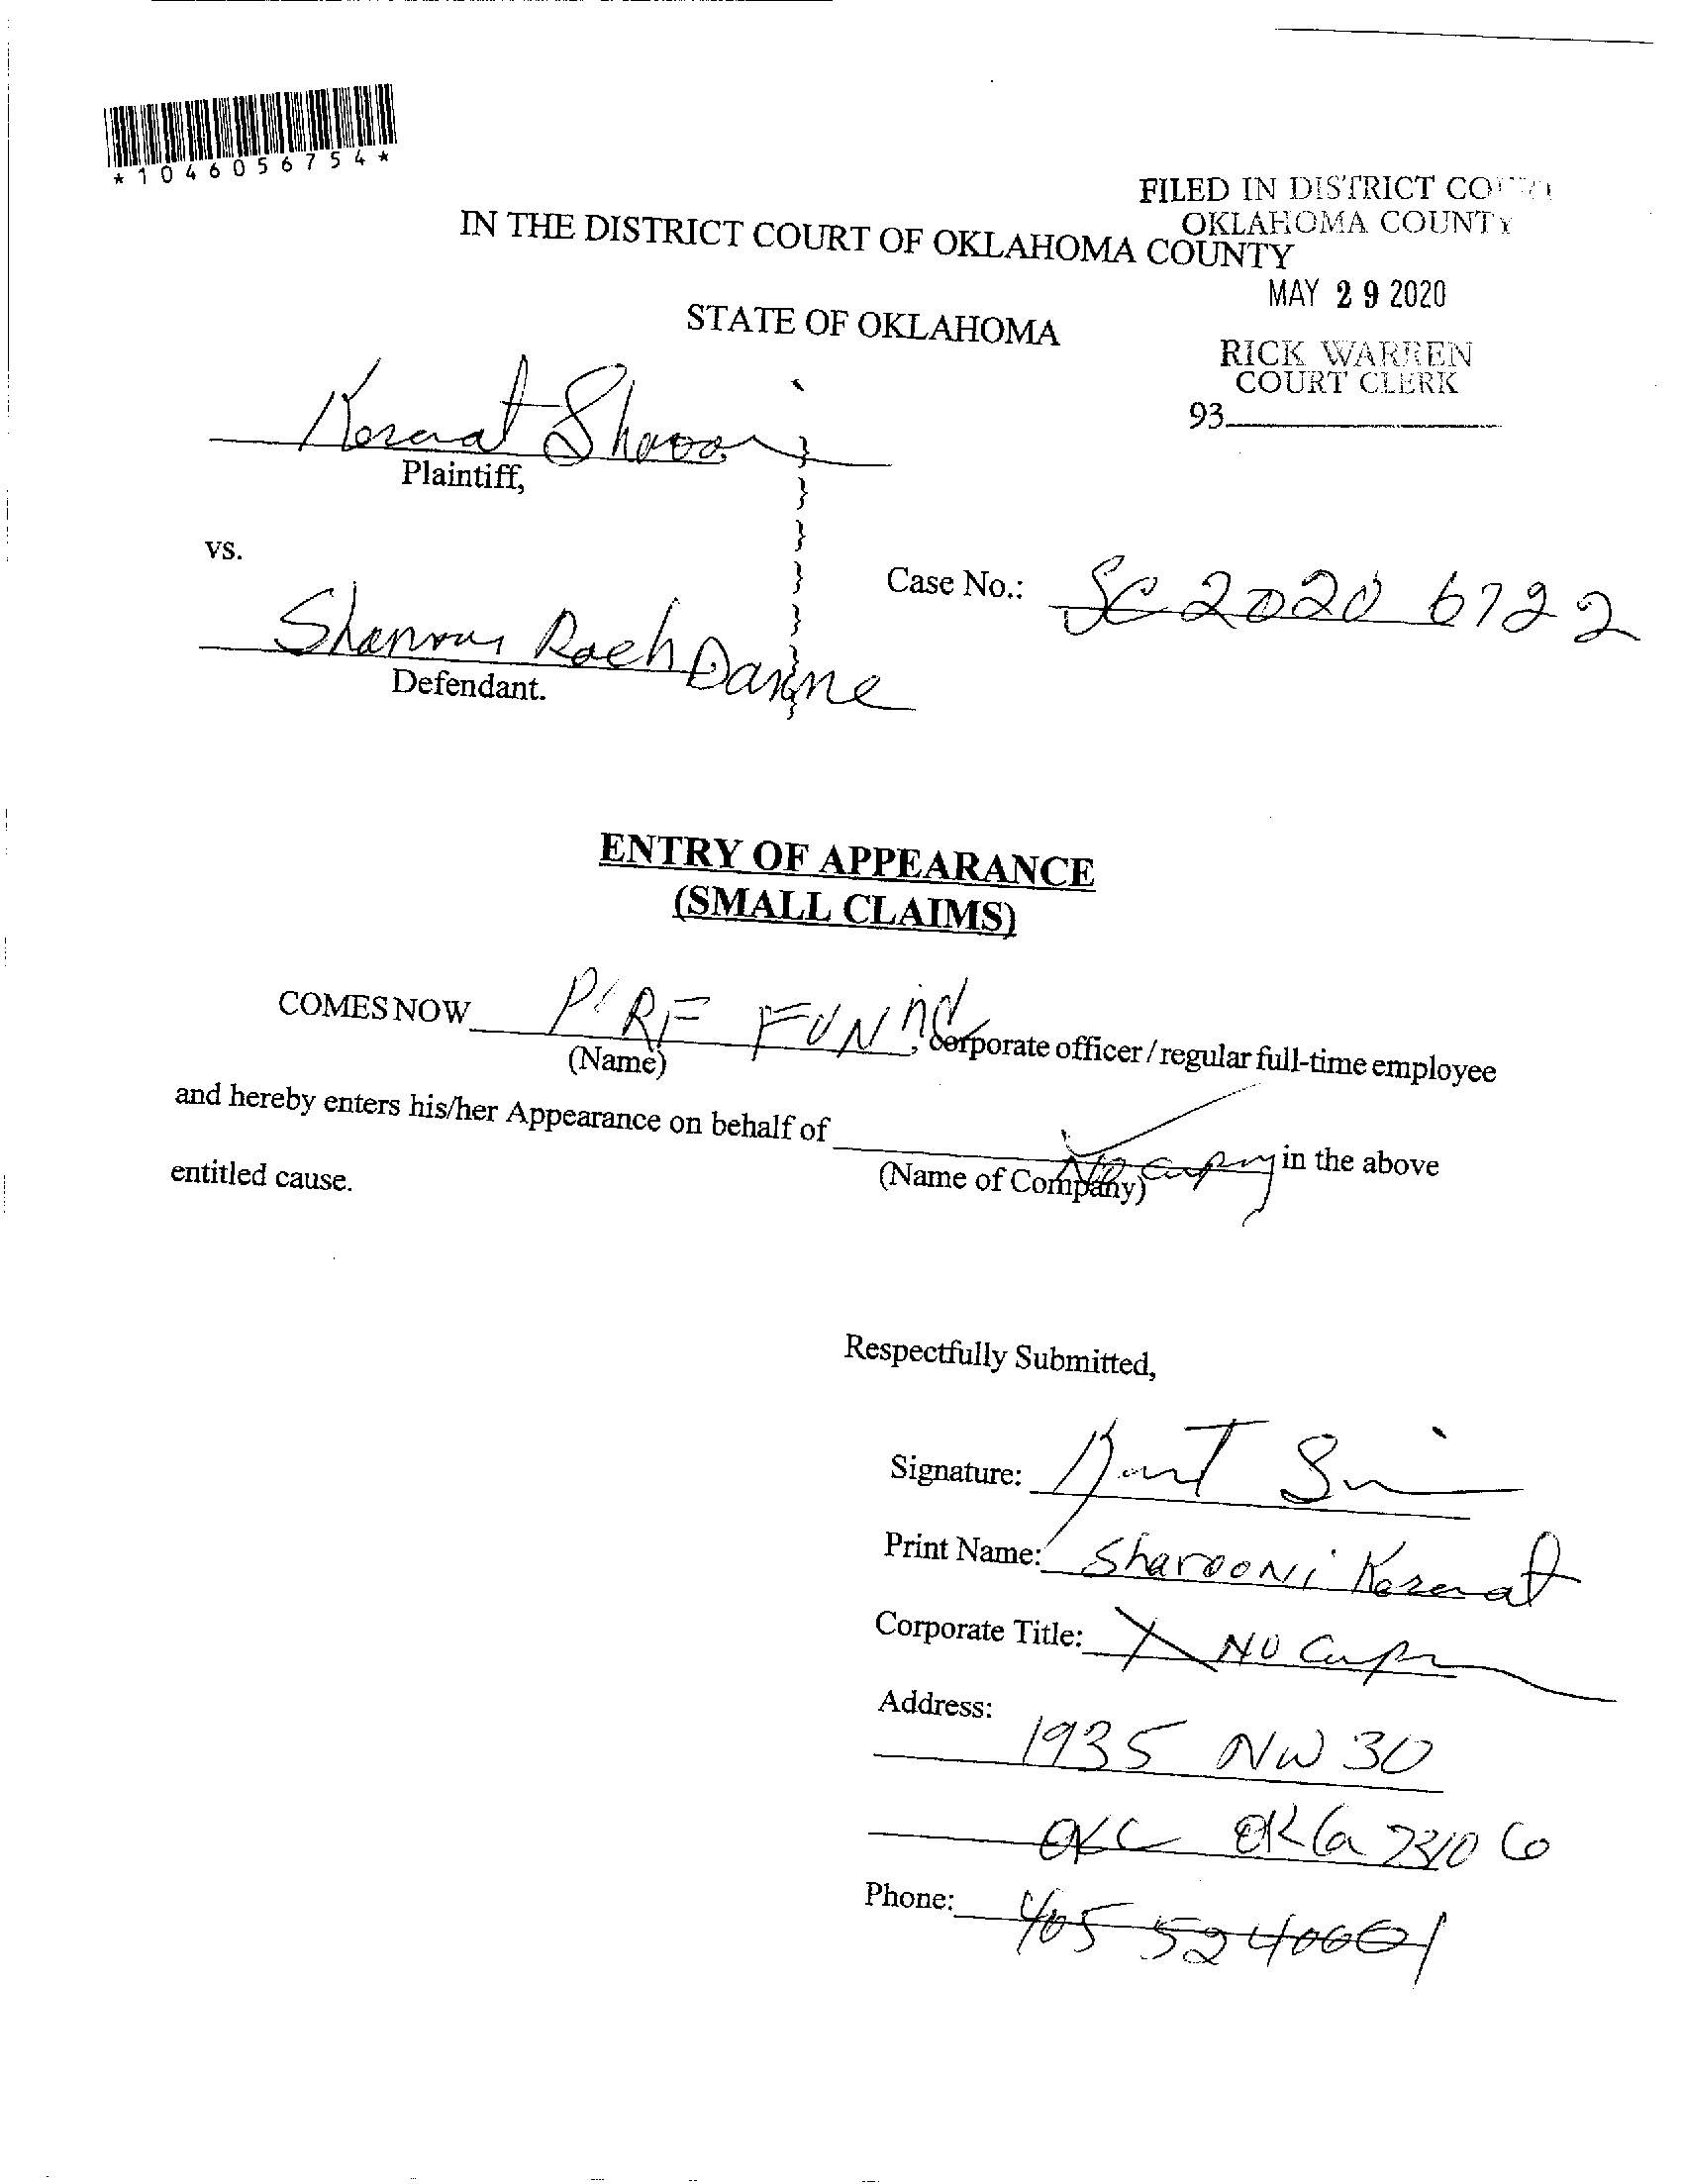 *1046056754*
FILED IN DISTRICT COURT
OKLAHOMA COUNTY
IN THE DISTRICT COURT OF OKLAHOMA COUNTY
MAY 29 2020
STATE OF OKLAHOMA
RICK WARREN
COURT CLERK
93
Plaintiff,
vs.
Case No.: SC 2020 6722
Shannon Roch Danne
Defendant.
ENTRY OF APPEARANCE
(SMALL CLAIMS)
COMES NOW , corporate officer / regular full-time employee
(Name)
and hereby enters his/her Appearance on behalf of No in the above
(Name of Company)
entitled cause.
Respectfully Submitted,
Signature:
Print Name: Sharooni Keramat
Corporate Title: X No
Address:
1935 NW 30
OKC Okla 73106
Phone: 405 5240001